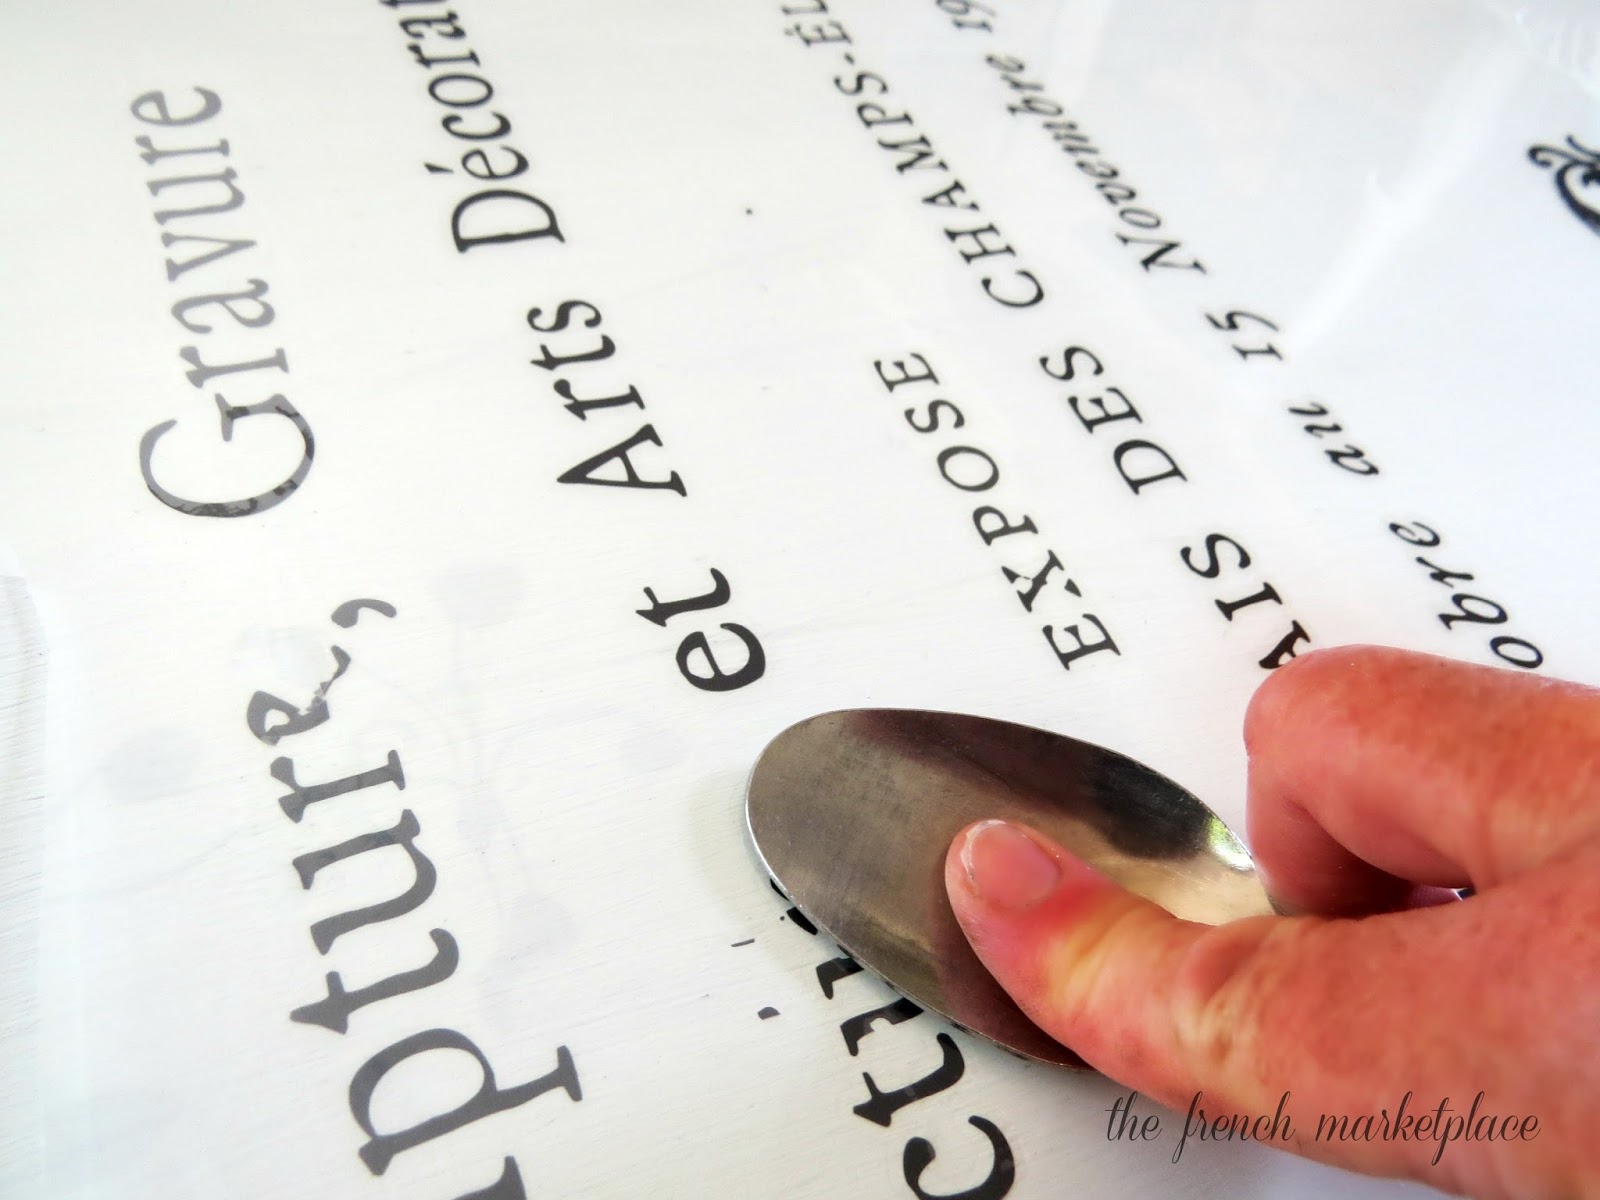 pture, Gravure
et Arts Décorat
EXPOSE
AIS DES CHAMPS-ÉL
obre au 15 Novembre 19
the french marketplace